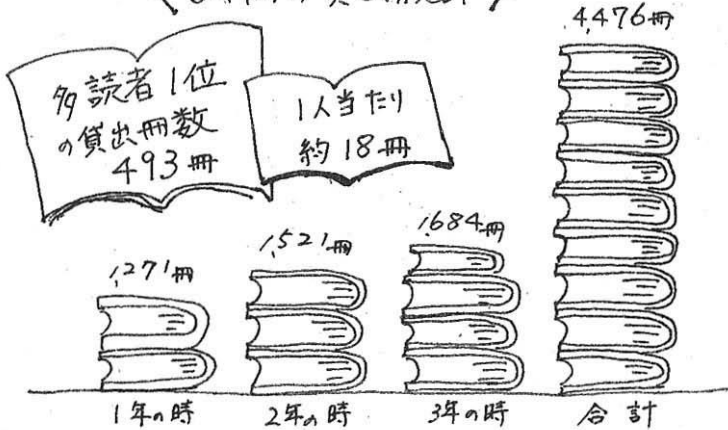 4,476冊
多読者1位
の貸出冊数
493冊
1人当たり
約18冊
1,271冊
1,521冊
1,684冊
1年の時
2年の時
3年の時
合計